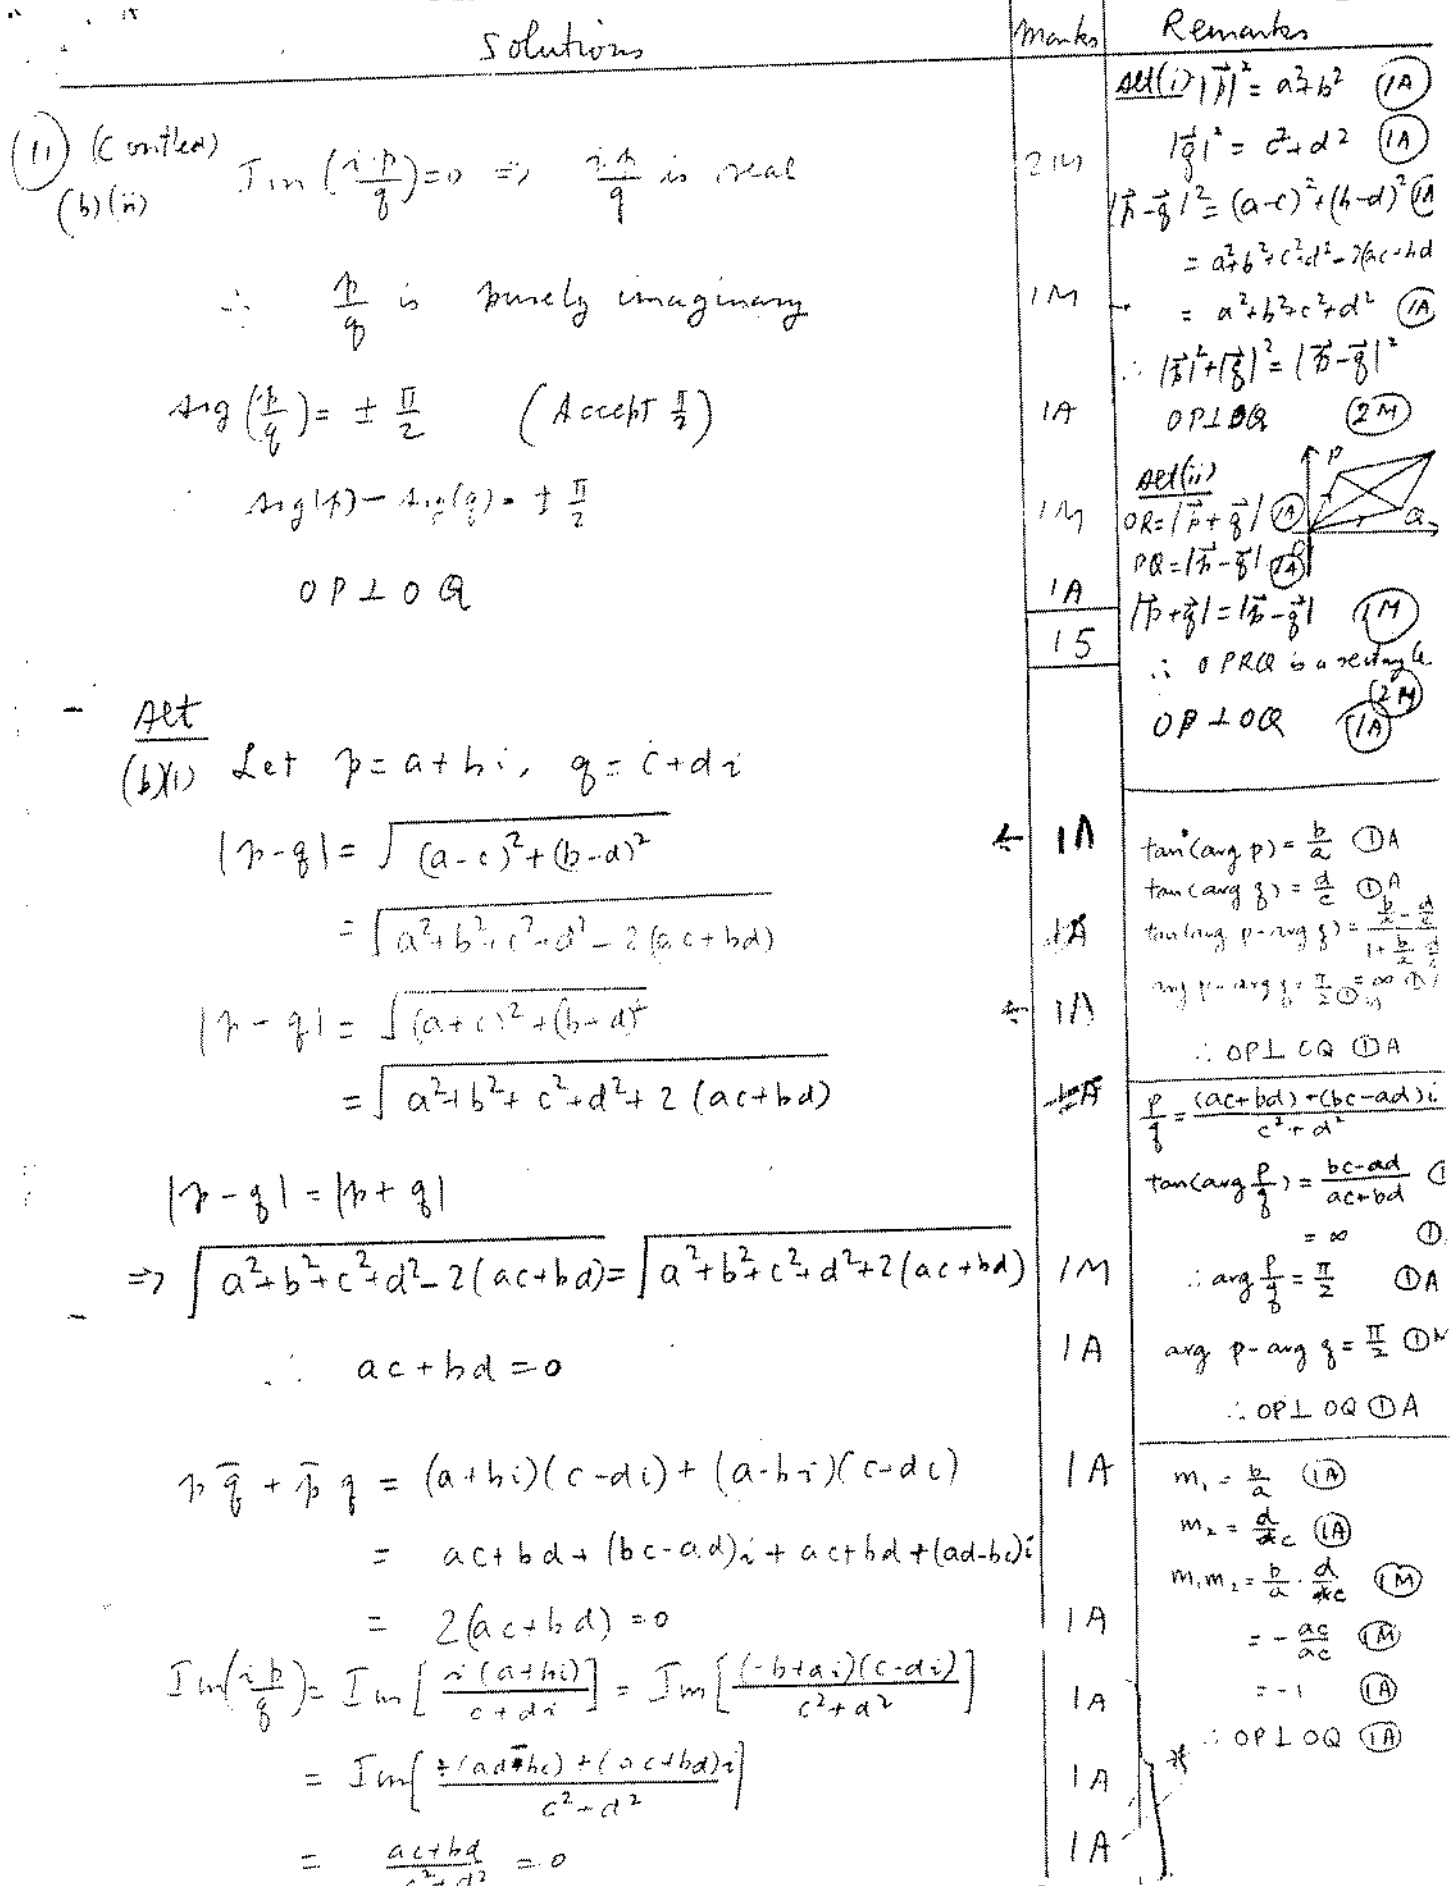 Solutions
Marks
Remarks
(11) (Contled)
(b)(ii) Im (i·p/q) = 0 ⇒ ip/q is real 2M
∴ p/q is purely imaginary 1M
Arg (p/q) = ± π/2 (Accept π/2) 1A
∴ Arg(p) − Arg(q) = ± π/2 1M
OP ⊥ OQ 1A
15
Alt
(b)(i) Let p = a + bi, q = c + di
|p − q| = √((a − c)² + (b − d)²) ← 1A
= √(a² + b² + c² + d² − 2(ac + bd)) 1A
|p − q| = √((a + c)² + (b + d)²) ← 1A
= √(a² + b² + c² + d² + 2(ac + bd)) 1A
|p − q| = |p + q|
⇒ √(a² + b² + c² + d² − 2(ac + bd)) = √(a² + b² + c² + d² + 2(ac + bd)) 1M
∴ ac + bd = 0 1A
p q̄ + p̄ q = (a + bi)(c − di) + (a − bi)(c + di) 1A
= ac + bd + (bc − ad)i + ac + bd + (ad − bc)i
= 2(ac + bd) = 0 1A
Im(ip/q) = Im[i(a + bi)/(c + di)] = Im[(−b + ai)(c − di)/(c² + d²)] 1A
= Im[(ad − bc) + (ac + bd)i/(c² + d²)] 1A
= (ac + bd)/(c² + d²) = 0 1A
Alt(i) |p⃗|² = a² + b² (1A)
|q⃗|² = c² + d² (1A)
|p⃗ − q⃗|² = (a − c)² + (b − d)² (1A
= a² + b² + c² + d² − 2(ac + bd
= a² + b² + c² + d² (1A
∴ |p⃗|² + |q⃗|² = |p⃗ − q⃗|²
OP ⊥ OQ (2M)
Alt(ii)
P
Q
OR = |p⃗ + q⃗| (1A)
PQ = |p⃗ − q⃗| (1A)
|p⃗ + q⃗| = |p⃗ − q⃗| (1M)
∴ OPRQ is a rectangle.
(2M)
OP ⊥ OQ (1A)
tan(arg p) = b/a (1)A
tan(arg q) = d/c (1)A
tan(arg p − arg q) = (b/a − d/c)/(1 + b/a d/c)
arg p − arg q = π/2 (1) = ∞
∴ OP ⊥ OQ (1)A
p/q = ((ac + bd) + (bc − ad)i)/(c² + d²)
tan(arg p/q) = (bc − ad)/(ac + bd) (1
= ∞ (1)
∴ arg p/q = π/2 (1)A
arg p − arg q = π/2 (1)M
∴ OP ⊥ OQ (1)A
m₁ = b/a (1A)
m₂ = d/c (1A)
m₁m₂ = b/a · d/c (1M)
= − ac/ac (1M)
= −1 (1A)
∴ OP ⊥ OQ (1A)
*